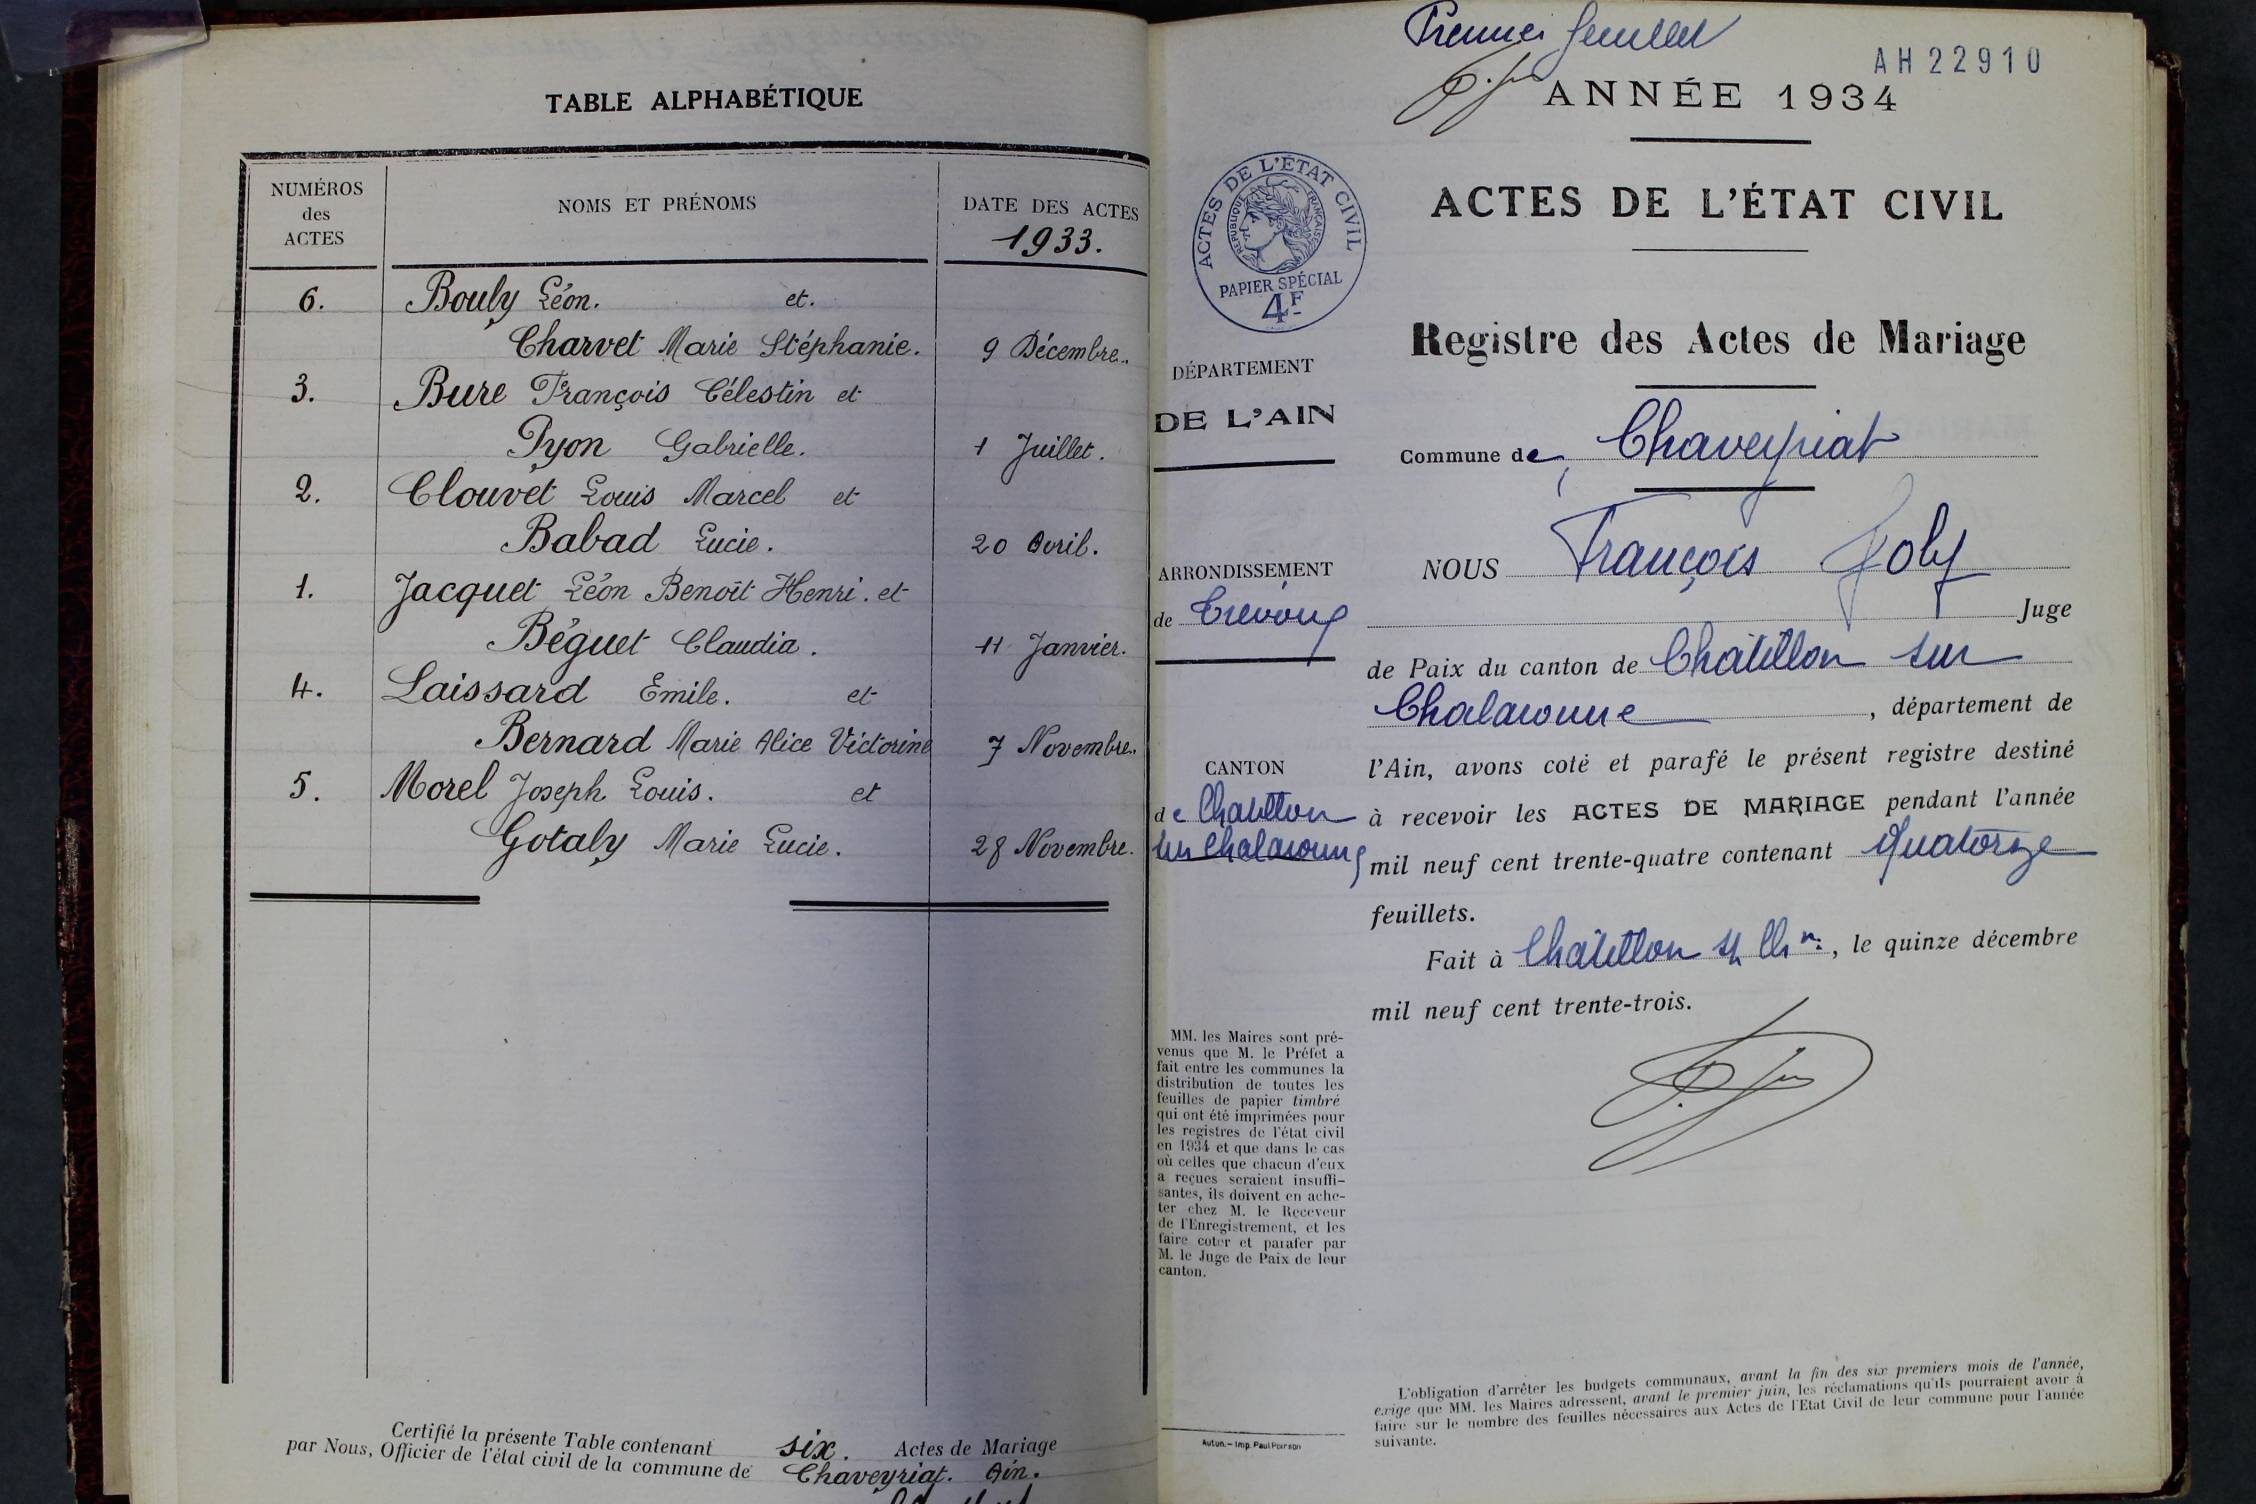 TABLE ALPHABÉTIQUE
NUMÉROS
des
ACTES
NOMS ET PRÉNOMS
DATE DES ACTES
1933.
6. Bouly Léon. et.
Charvet Marie Stéphanie. 9 Décembre.
3. Bure François Célestin et
Pyon Gabrielle. 1 Juillet.
2. Clouvet Louis Marcel et
Babad Lucie. 20 Avril.
1. Jacquet Léon Benoît Henri. et
Béguet Claudia. 11 Janvier.
4. Laissard Emile. et
Bernard Marie Alice Victorine 7 Novembre.
5. Morel Joseph Louis. et
Gotaly Marie Lucie. 28 Novembre.
Certifié la présente Table contenant six. Actes de Mariage
par Nous, Officier de l'état civil de la commune de Chaveyriat. Ain.
Premier feuillet
AH22910
ANNÉE 1934
ACTES DE L'ÉTAT CIVIL
ACTES DE L'ÉTAT CIVIL
RÉPUBLIQUE FRANÇAISE
PAPIER SPÉCIAL
4F
Registre des Actes de Mariage
DÉPARTEMENT
DE L'AIN
ARRONDISSEMENT
de Trévoux
CANTON
de Chatillon
sur Chalaronne
MM. les Maires sont pré-
venus que M. le Préfet a
fait entre les communes la
distribution de toutes les
feuilles de papier timbré
qui ont été imprimées pour
les registres de l'état civil
en 1934 et que dans le cas
où celles que chacun d'eux
a reçues seraient insuffi-
santes, ils doivent en ache-
ter chez M. le Receveur
de l'Enregistrement, et les
faire coter et parafer par
M. le Juge de Paix de leur
canton.
Autun. — Imp. Paul Poirson
Commune de Chaveyriat
NOUS François Joly
Juge
de Paix du canton de Châtillon sur
Chalaronne, département de
l'Ain, avons coté et parafé le présent registre destiné
à recevoir les ACTES DE MARIAGE pendant l'année
mil neuf cent trente-quatre contenant Quatorze
feuillets.
Fait à Châtillon s/ Chne, le quinze décembre
mil neuf cent trente-trois.
L'obligation d'arrêter les budgets communaux, avant la fin des six premiers mois de l'année,
exige que MM. les Maires adressent, avant le premier juin, les réclamations qu'ils pourraient avoir à
faire sur le nombre des feuilles nécessaires aux Actes de l'Etat Civil de leur commune pour l'année
suivante.